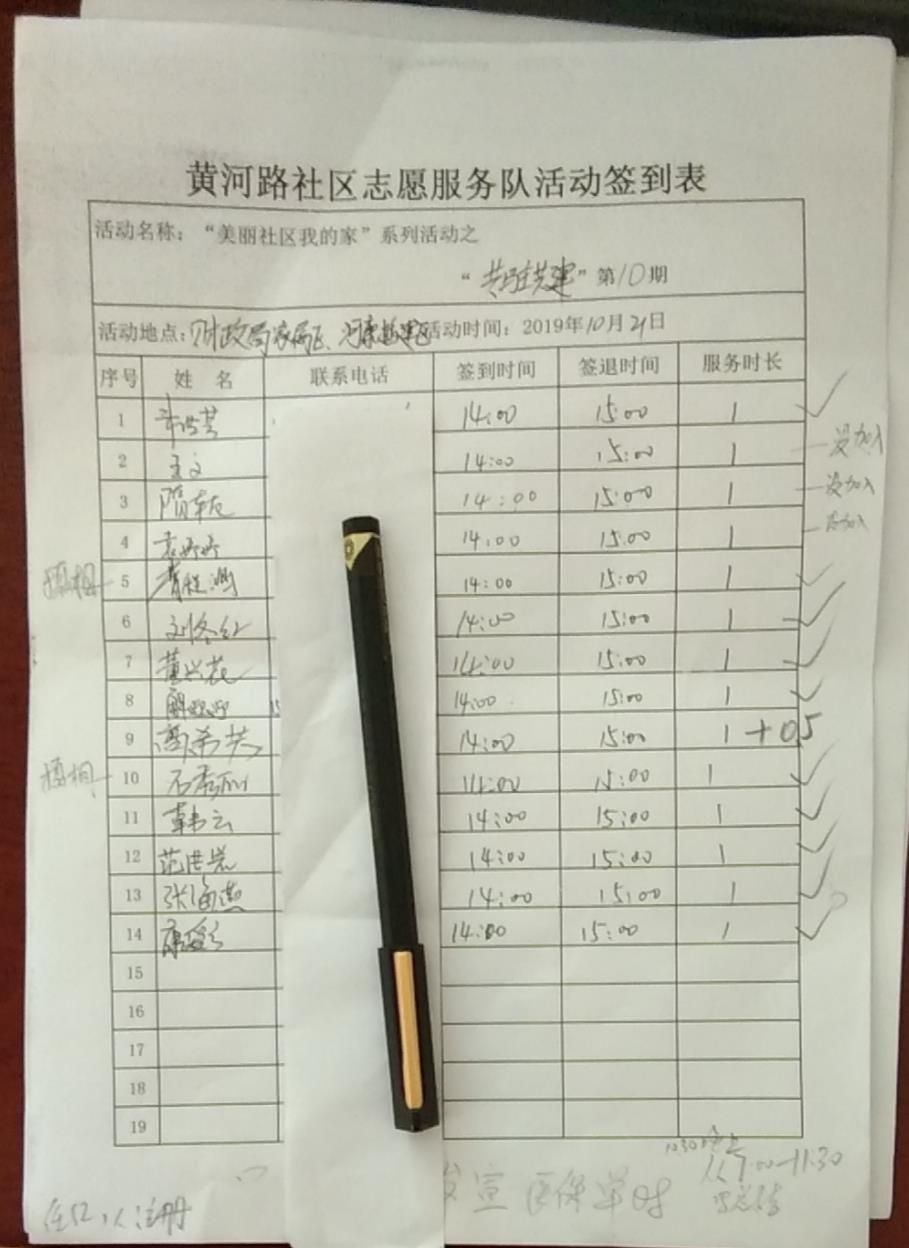 黄河路社区志愿服务队活动签到表
活动名称:“美丽社区我的家”系列活动之
“共驻共建”第10期
活动地点:财政局家属区、 活动时间:2019年10月21日
序号 姓 名 联系电话 签到时间 签退时间 服务时长
1 14:00 15:00 1 ✓
2 王文 14:00 15:00 1 —没加入
3 14:00 15:00 1 —没加入
4 袁婷婷 14:00 15:00 1 没加入
梧桐— 5 14:00 15:00 1 ✓
6 刘冬红 14:00 15:00 1 ✓
7 董兴花 14:00 15:00 1 ✓
8 14:00 15:00 1 ✓
9 高希芸 14:00 15:00 1 +0.5
梧桐— 10 石秀丽 14:00 15:00 1 ✓
11 韩云 14:00 15:00 1 ✓
12 范洪岩 14:00 15:00 1 ✓
13 张海燕 14:00 15:00 1 ✓
14 14:00 15:00 1 ✓
15
16
17
18
19
发宣 医保单 从7:00—11:30
注册